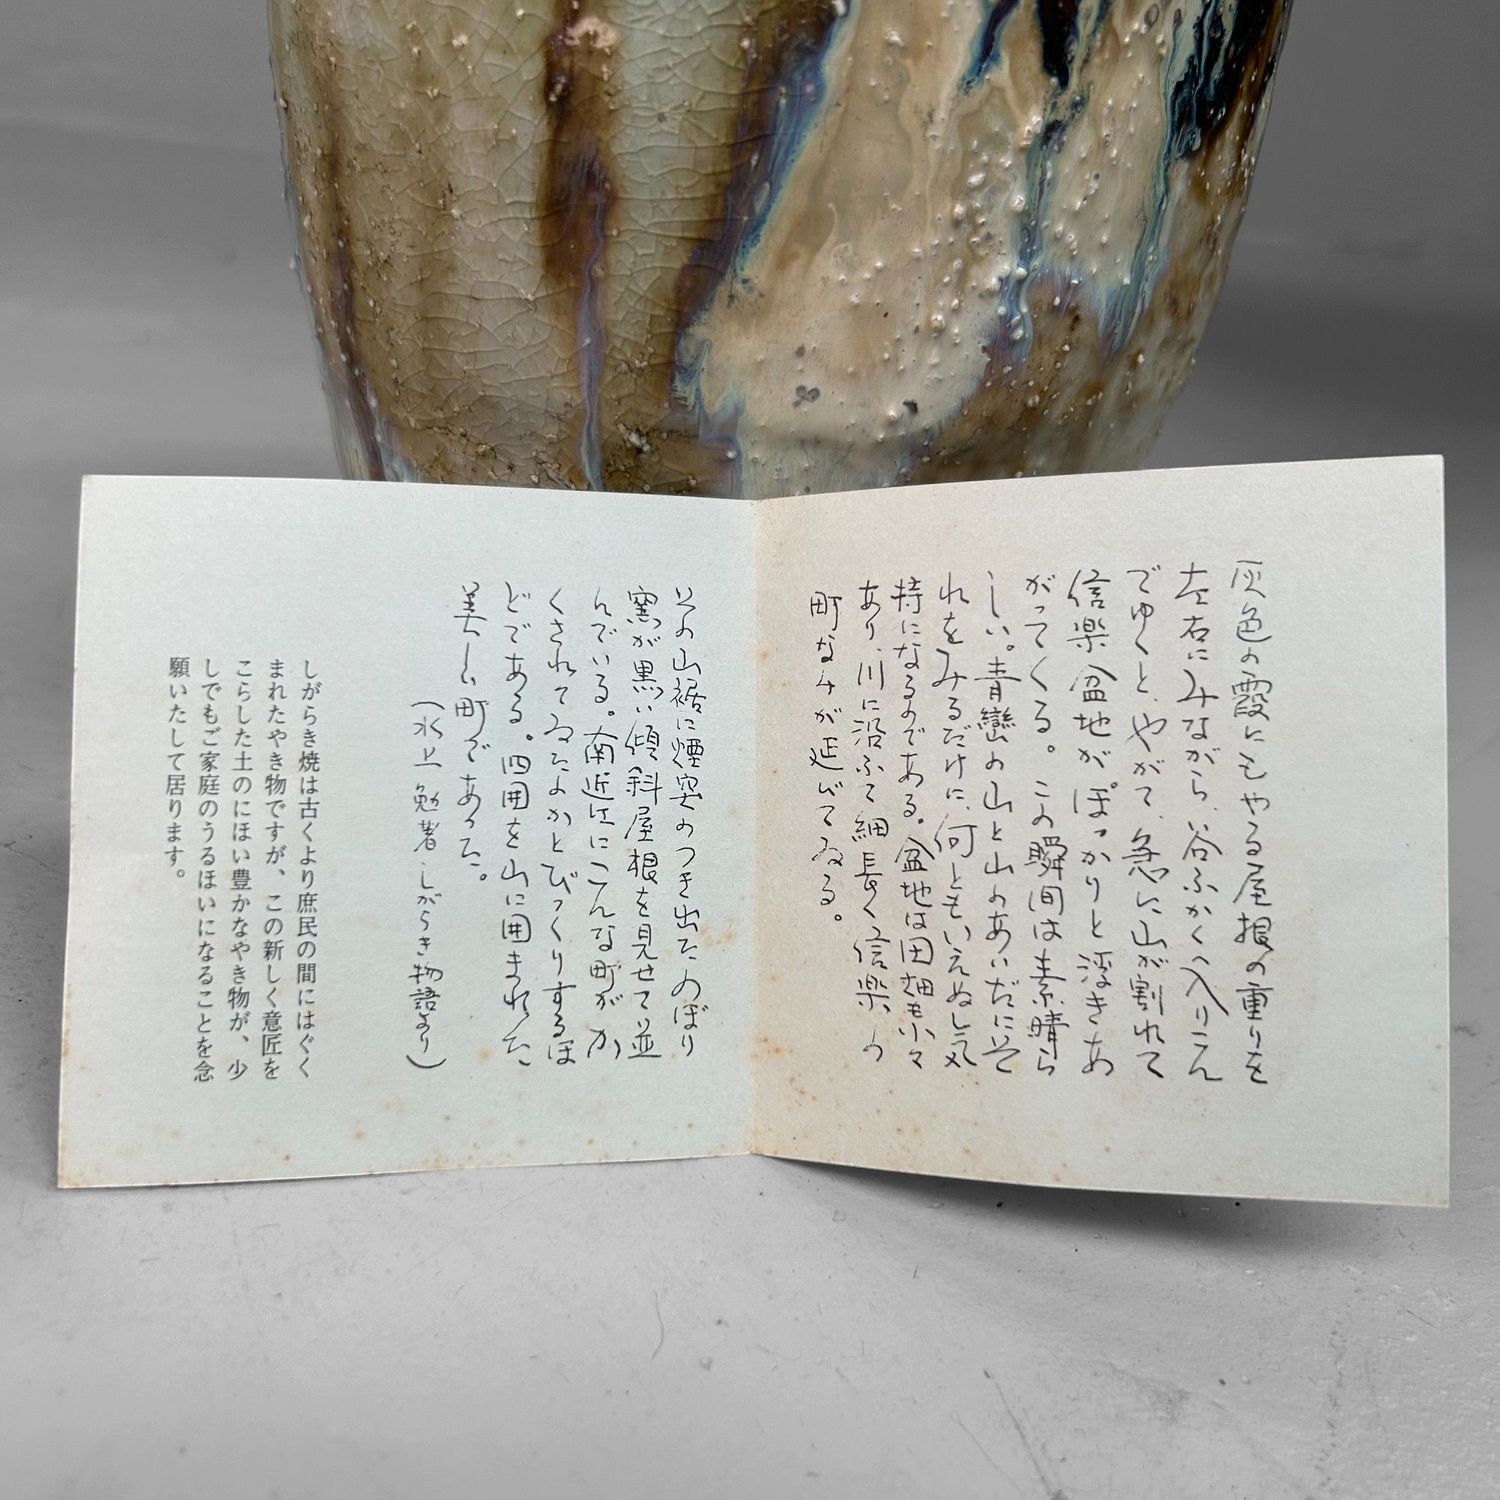 灰色の霞にもやる屋根の重りを
左右にみながら、谷ふかく入りこん
でゆくと、やがて、急に山が割れて
信楽盆地がぽっかりと浮きあ
がってくる。この瞬間は素晴ら
しい。青巒の山と山のあいだに空
れをみるだけに、何ともいえぬし気
特になるのである。盆地は田畑も少々
あり、川に沿ふて細長く信楽の
町なみが延びてゐる。
その山裾に煙突のつき出たのぼり
窯が黒い傾斜屋根を見せて並
んでいる。南近江にこんな町がか
くされてゐたかとびっくりするほ
どである。四囲を山に囲まれた
美しい町であった。
(水上勉著・しがらき物語より)
しがらき焼は古くより庶民の間にはぐく
まれたやき物ですが、この新しく意匠を
こらした土のにほい豊かなやき物が、少
しでもご家庭のうるほいになることを念
願いたして居ります。